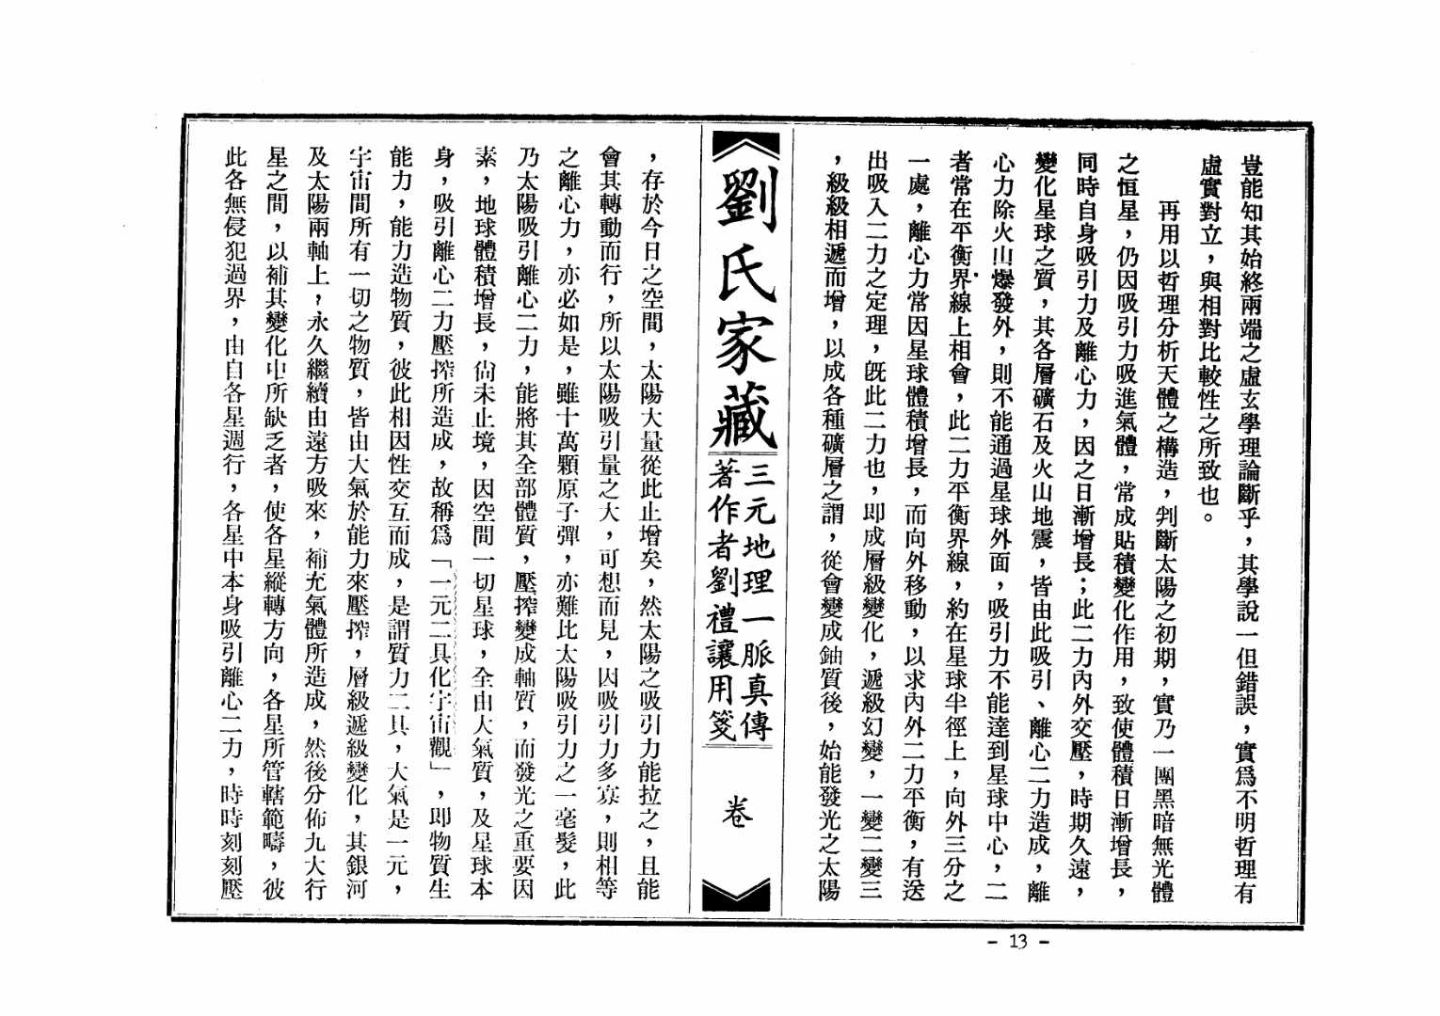 豈能知其始終兩端之虛玄學理論斷乎，其學說一但錯誤，實爲不明哲理有
虛實對立，與相對比較性之所致也。
再用以哲理分析天體之構造，判斷太陽之初期，實乃一團黑暗無光體
之恒星，仍因吸引力吸進氣體，常成貼積變化作用，致使體積日漸增長，
同時自身吸引力及離心力，因之日漸增長；此二力內外交壓，時期久遠，
變化星球之質，其各層礦石及火山地震，皆由此吸引、離心二力造成，離
心力除火山爆發外，則不能通過星球外面，吸引力不能達到星球中心，二
者常在平衡界線上相會，此二力平衡界線，約在星球半徑上，向外三分之
一處，離心力常因星球體積增長，而向外移動，以求內外二力平衡，有送
出吸入二力之定理，旣此二力也，即成層級變化，遞級幻變，一變二變三
，級級相遞而增，以成各種礦層之謂，從會變成鈾質後，始能發光之太陽
劉氏家藏
三元地理一脈真傳
著作者劉禮讓用箋
卷
，存於今日之空間，太陽大量從此止增矣，然太陽之吸引力能拉之，且能
會其轉動而行，所以太陽吸引量之大，可想而見，因吸引力多寡，則相等
之離心力，亦必如是，雖十萬顆原子彈，亦難比太陽吸引力之一毫髮，此
乃太陽吸引離心二力，能將其全部體質，壓搾變成軸質，而發光之重要因
素，地球體積增長，尙未止境，因空間一切星球，全由大氣質，及星球本
身，吸引離心二力壓搾所造成，故稱爲「一元二具化宇宙觀」，即物質生
能力，能力造物質，彼此相因性交互而成，是謂質力二具，大氣是一元，
宇宙間所有一切之物質，皆由大氣於能力來壓搾，層級遞級變化，其銀河
及太陽兩軸上，永久繼續由遠方吸來，補充氣體所造成，然後分佈九大行
星之間，以補其變化中所缺乏者，使各星縱轉方向，各星所管轄範疇，彼
此各無侵犯過界，由自各星週行，各星中本身吸引離心二力，時時刻刻壓
- 13 -